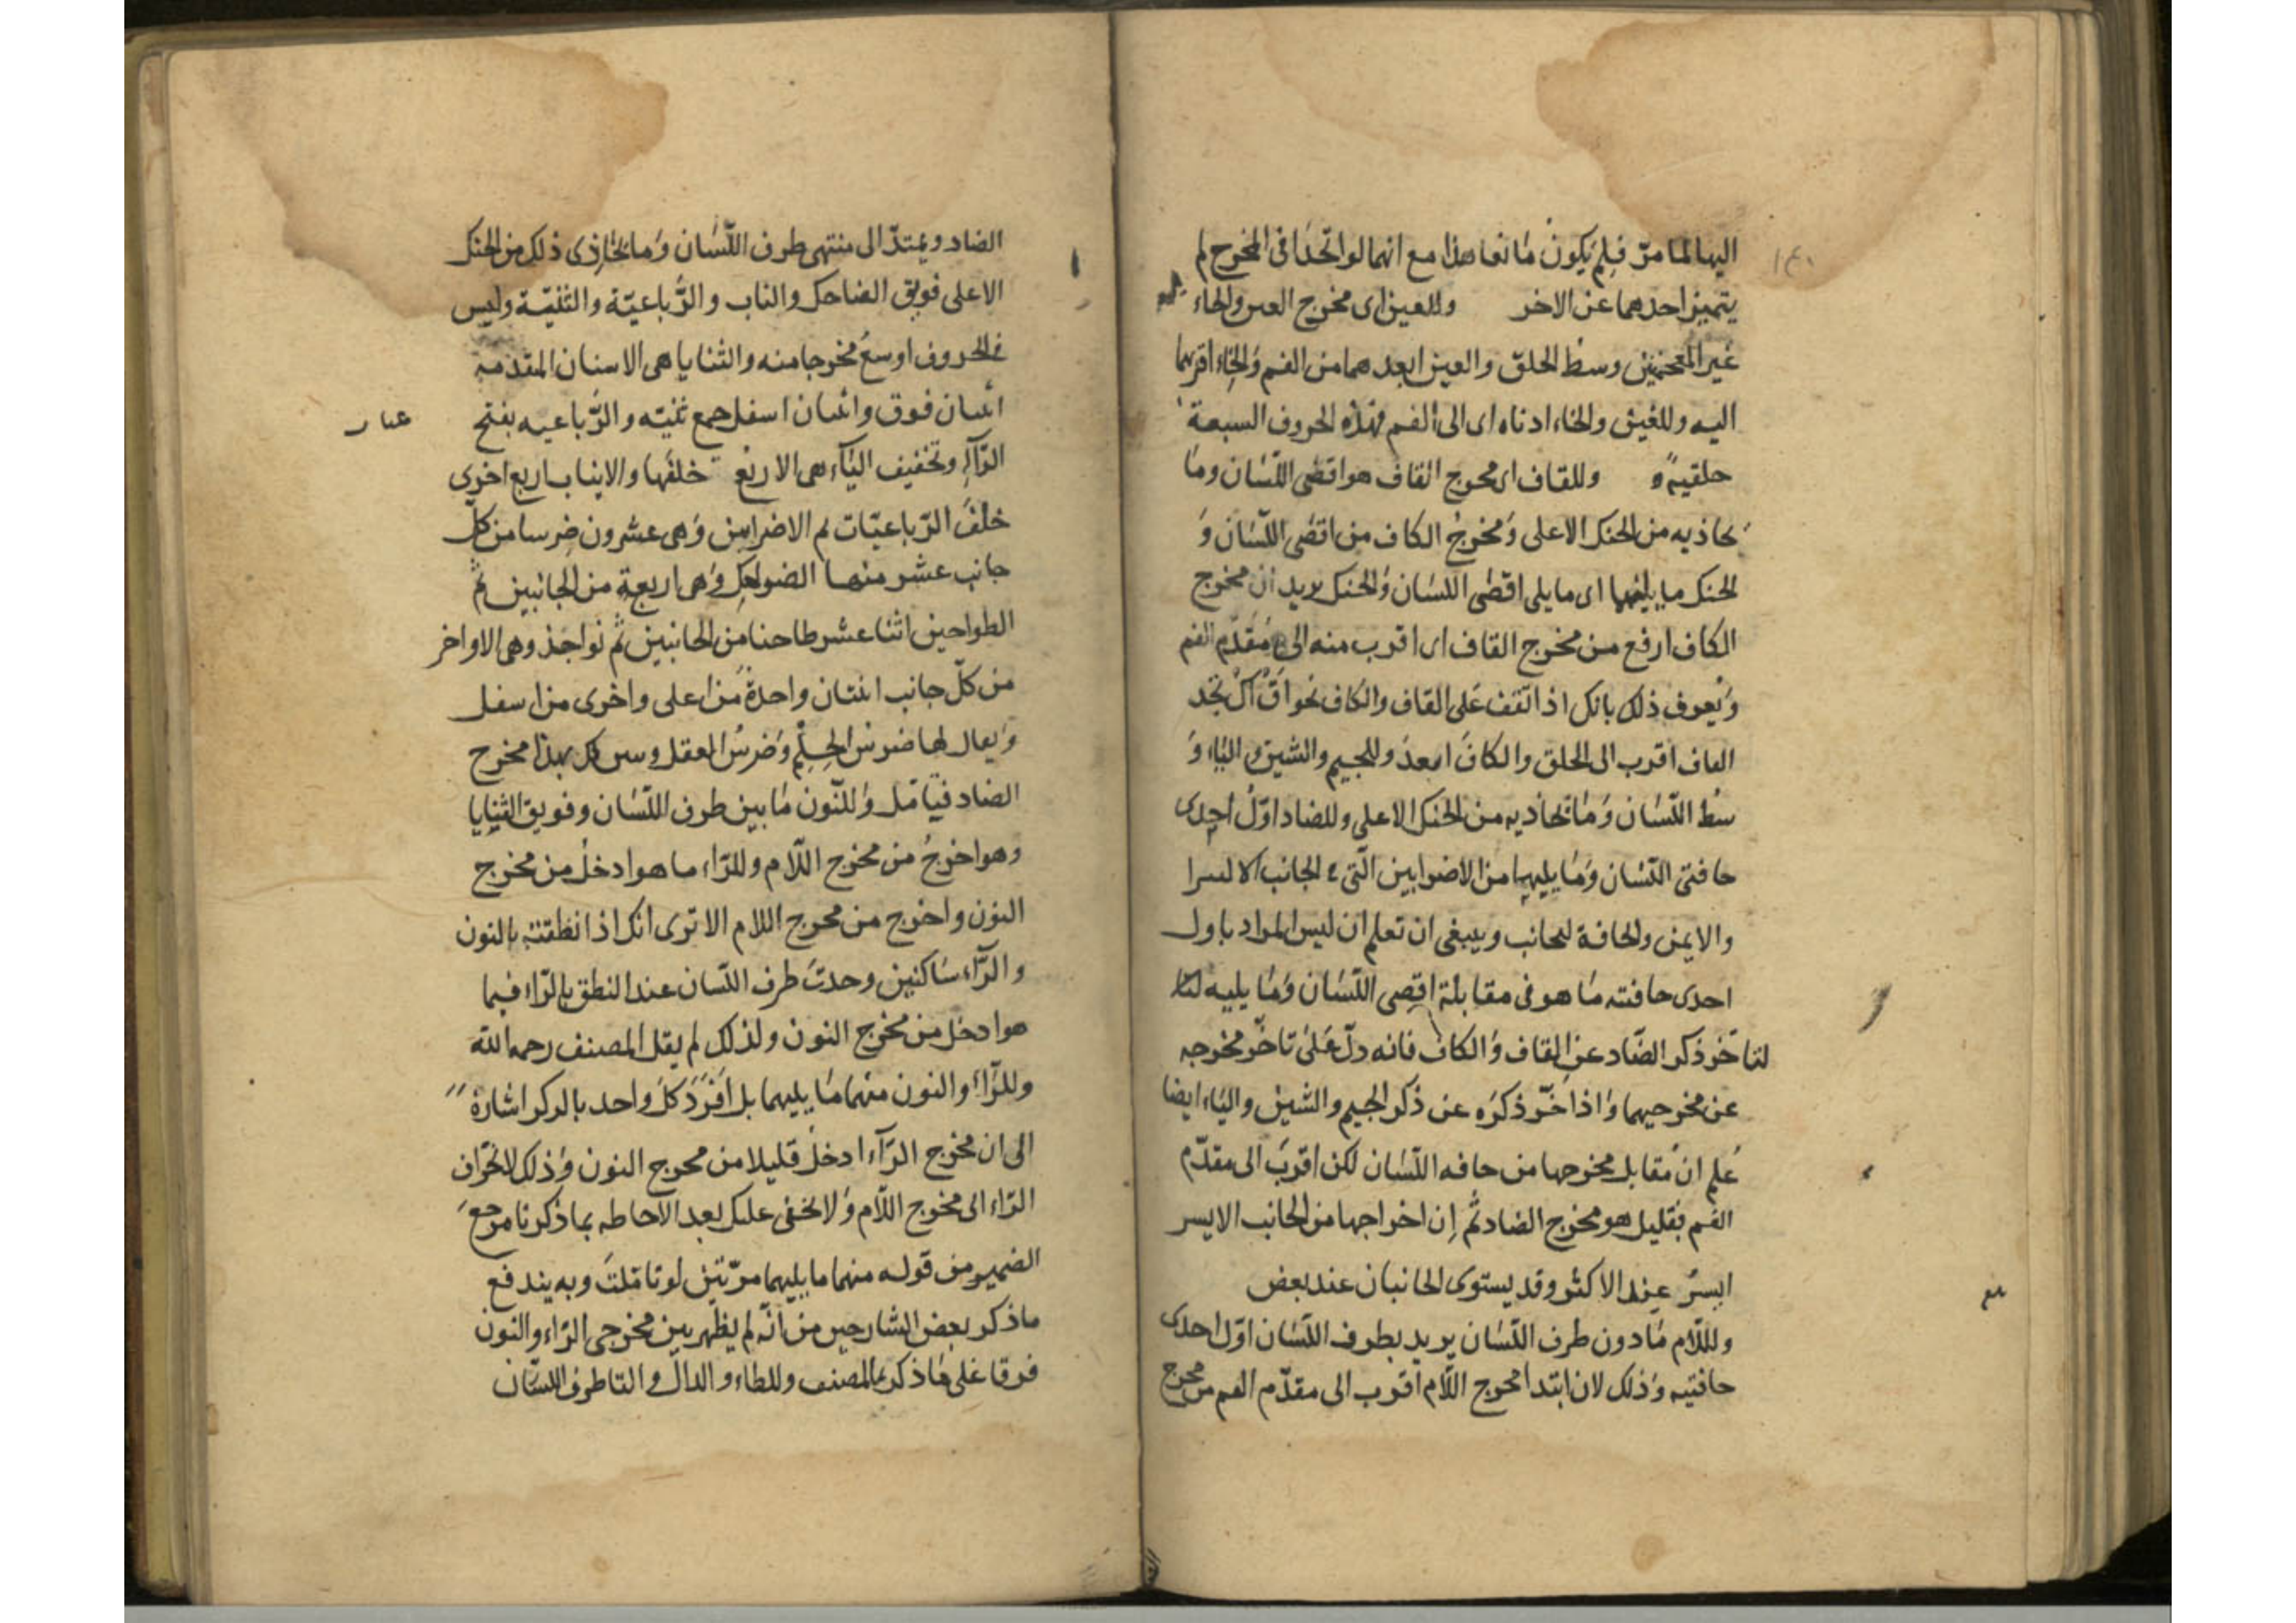 ١٤٠
اليها لما مرّ فلم يكون مانعا هذا مع انهما لو اتحدا فى المخرج لم
يتميز احدهما عن الاخر وللعين اى مخرج العين والحاء
غير المعجمتين وسط الحلق والعين ابعدهما من الفم والحاء اقربهما
اليه وللغين والخاء ادناه اى الى الفم فهذه الحروف السبعة
حلقية وللقاف اى مخرج القاف هو اقصى اللّسان وما
يحاذيه من الحنك الاعلى ومخرج الكاف من اقصى اللّسان وَ
الحنك ما يليهما اى ما يلى اقصى اللسان والحنك يريد ان مخرج
الكاف ارفع من مخرج القاف اى اقرب منه الى مقدّم الفم
ويعرف ذلك بانك اذا تقف على القاف والكاف نحو اقْ اكْ تجد
القاف اقرب الى الحلق والكاف ابعد وللجيم والشين والياء وَ
سط اللّسان وما يحاذيه من الحنك الاعلى وللضاد اوّل احدى
حافتى اللسان وما يليهما من الاضراس التى فى الجانب الايسر
والايمن والحافة الجانب وينبغى ان تعلم ان ليس المراد باول
احدى حافته ما هو فى مقابلة اقصى اللّسان وما يليه
لتاخّر ذكر الضّاد عن القاف والكاف فانه دلّ على تاخر مخرجه
عن مخرجيهما واذا اخّر ذكره عن ذكر الجيم والشين والياء ايضا
عُلم ان مقابل مخرجها من حافه اللّسان لكن اقرب الى مقدّم
الفم بقليل هو مخرج الضاد ثم إن اخراجها من الجانب الايسر
ايسرُ عند الاكثر وقد يستوى الجانبان عند بعض
وللّلام ما دون طرف اللّسان يريد بطرف اللّسان اوّل احدى
حافتيه وذلك لان ابتدا مخرج اللّام اقرب الى مقدّم الفم من مخرج
الضاد ويمتدّ الى منتهى طرف اللّسان وما يحاذى ذلك من الحنك
الاعلى فويق الضاحك والناب والرُّباعيّة والثنيّة وليس
فى الحروف اوسع مخرجا منه والثنايا هى الاسنان المقدمه
اثنان فوق واثنان اسفل جمع ثنيّه والرَّباعيه بفتح
الرّاء وتخفيف الياء هى الاربع خلفها والانياب اربع اخرى
خلف الرّباعيّات ثم الاضراس وهى عشرون ضرسا من كلّ
جانب عشر منها الضواحك وهى اربعة من الجانبين ثمّ
الطواحين اثنا عشر طاحنا من الجانبين ثم نواجذ وهى الاواخر
من كلّ جانب اثنتان واحدة من اعلى واخرى من اسفل
ويقال لها ضرس الحِلْم وضرس العقل وبين كل هذا مخرج
الضاد فتامّل وللّنون ما بين طرف اللسان وفويق الثنايا
وهو اخرج من مخرج اللّام وللرّاء ما هو ادخل من مخرج
النون واخرج من مخرج اللام الا ترى انك اذا نطقت بالنون
والرّاء ساكنين وجدت طرف اللّسان عند النطق بالرّاء فيما
هو ادخل من مخرج النون ولذلك لم يقل المصنف رحمه الله
وللرّاء والنون منهما ما يليهما بل افرد كل واحد بالذكر اشارة
الى ان مخرج الرّاء ادخل قليلا من مخرج النون وذلك لانحراف
الرّاء الى مخرج اللّام ولا يخفى عليك بعد الاحاطه بما ذكرنا مرجع
الضمير من قوله منهما ما يليهما مرّتين لو تاملت وبه يندفع
ما ذكر بعض الشارحين من انّه لم يظهر بين مخرجى الرّاء والنون
فرقا على ما ذكره المصنف وللطاء والدال والتا طرف اللسّان